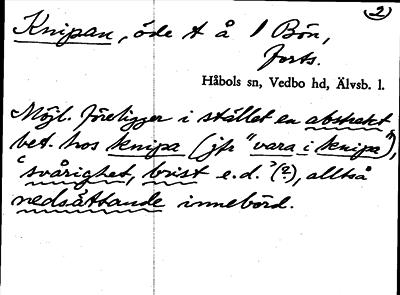 2)
Knipan, öde t å 1 Bön,
forts.
Håbols sn, Vedbo hd, Älvsb. l.
Möjl. föreligger i stället en abstrakt
bet. hos knipa (jfr "vara i knipa"),
'svårighet, brist e.d.' (?), alltså
nedsättande innebörd.